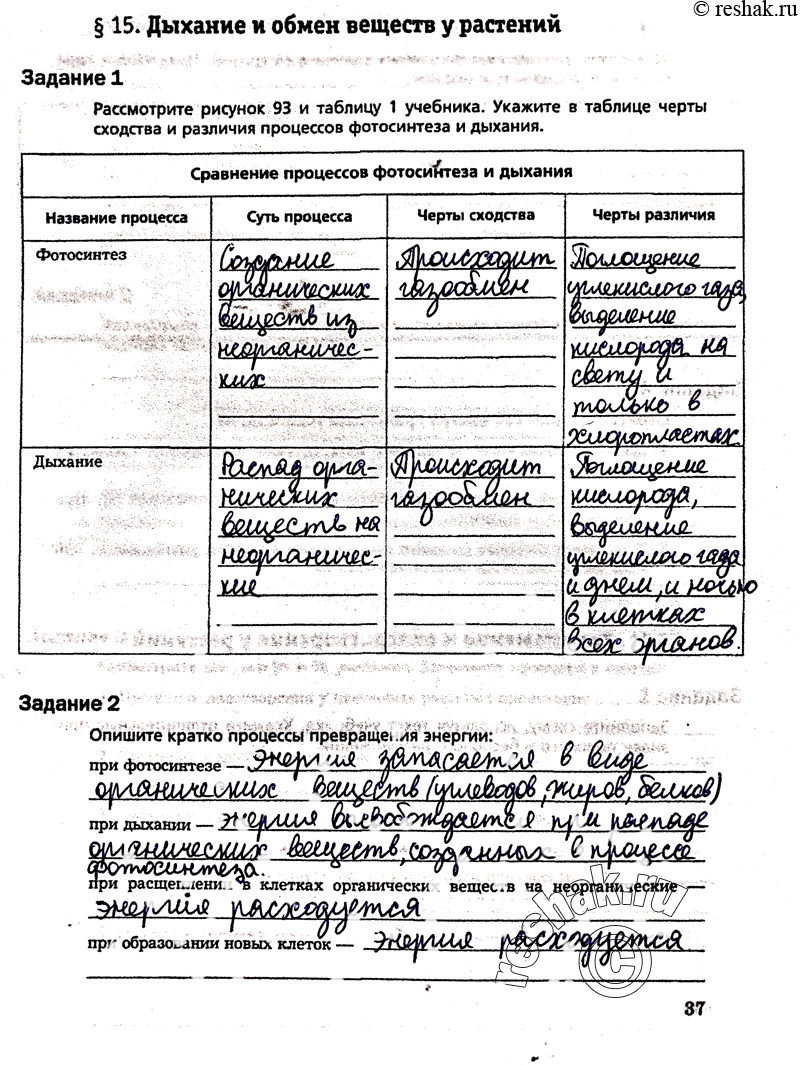 © reshak.ru
§ 15. Дыхание и обмен веществ у растений
Задание 1
Рассмотрите рисунок 93 и таблицу 1 учебника. Укажите в таблице черты
сходства и различия процессов фотосинтеза и дыхания.
Сравнение процессов фотосинтеза и дыхания
Название процесса
Суть процесса
Черты сходства
Черты различия
Фотосинтез
Создание
органических
веществ из
неорганичес-
ких
Происходит
газообмен
Поглощение
углекислого газа,
выделение
кислорода на
свету и
только в
хлоропластах
Дыхание
Распад орга-
нических
веществ на
неорганичес-
кие
Происходит
газообмен
Поглощение
кислорода,
выделение
углекислого газа
и днем, и ночью
в клетках
всех органов.
Задание 2
Опишите кратко процессы превращения энергии:
при фотосинтезе — энергия запасается в виде
органических веществ (углеводов, жиров, белков)
при дыхании — энергия высвобождается при распаде
органических веществ, созданных в процессе
фотосинтеза.
при расщеплении в клетках органических веществ на неорганические —
энергия расходуется
при образовании новых клеток — энергия расходуется
reshak.ru
©
37